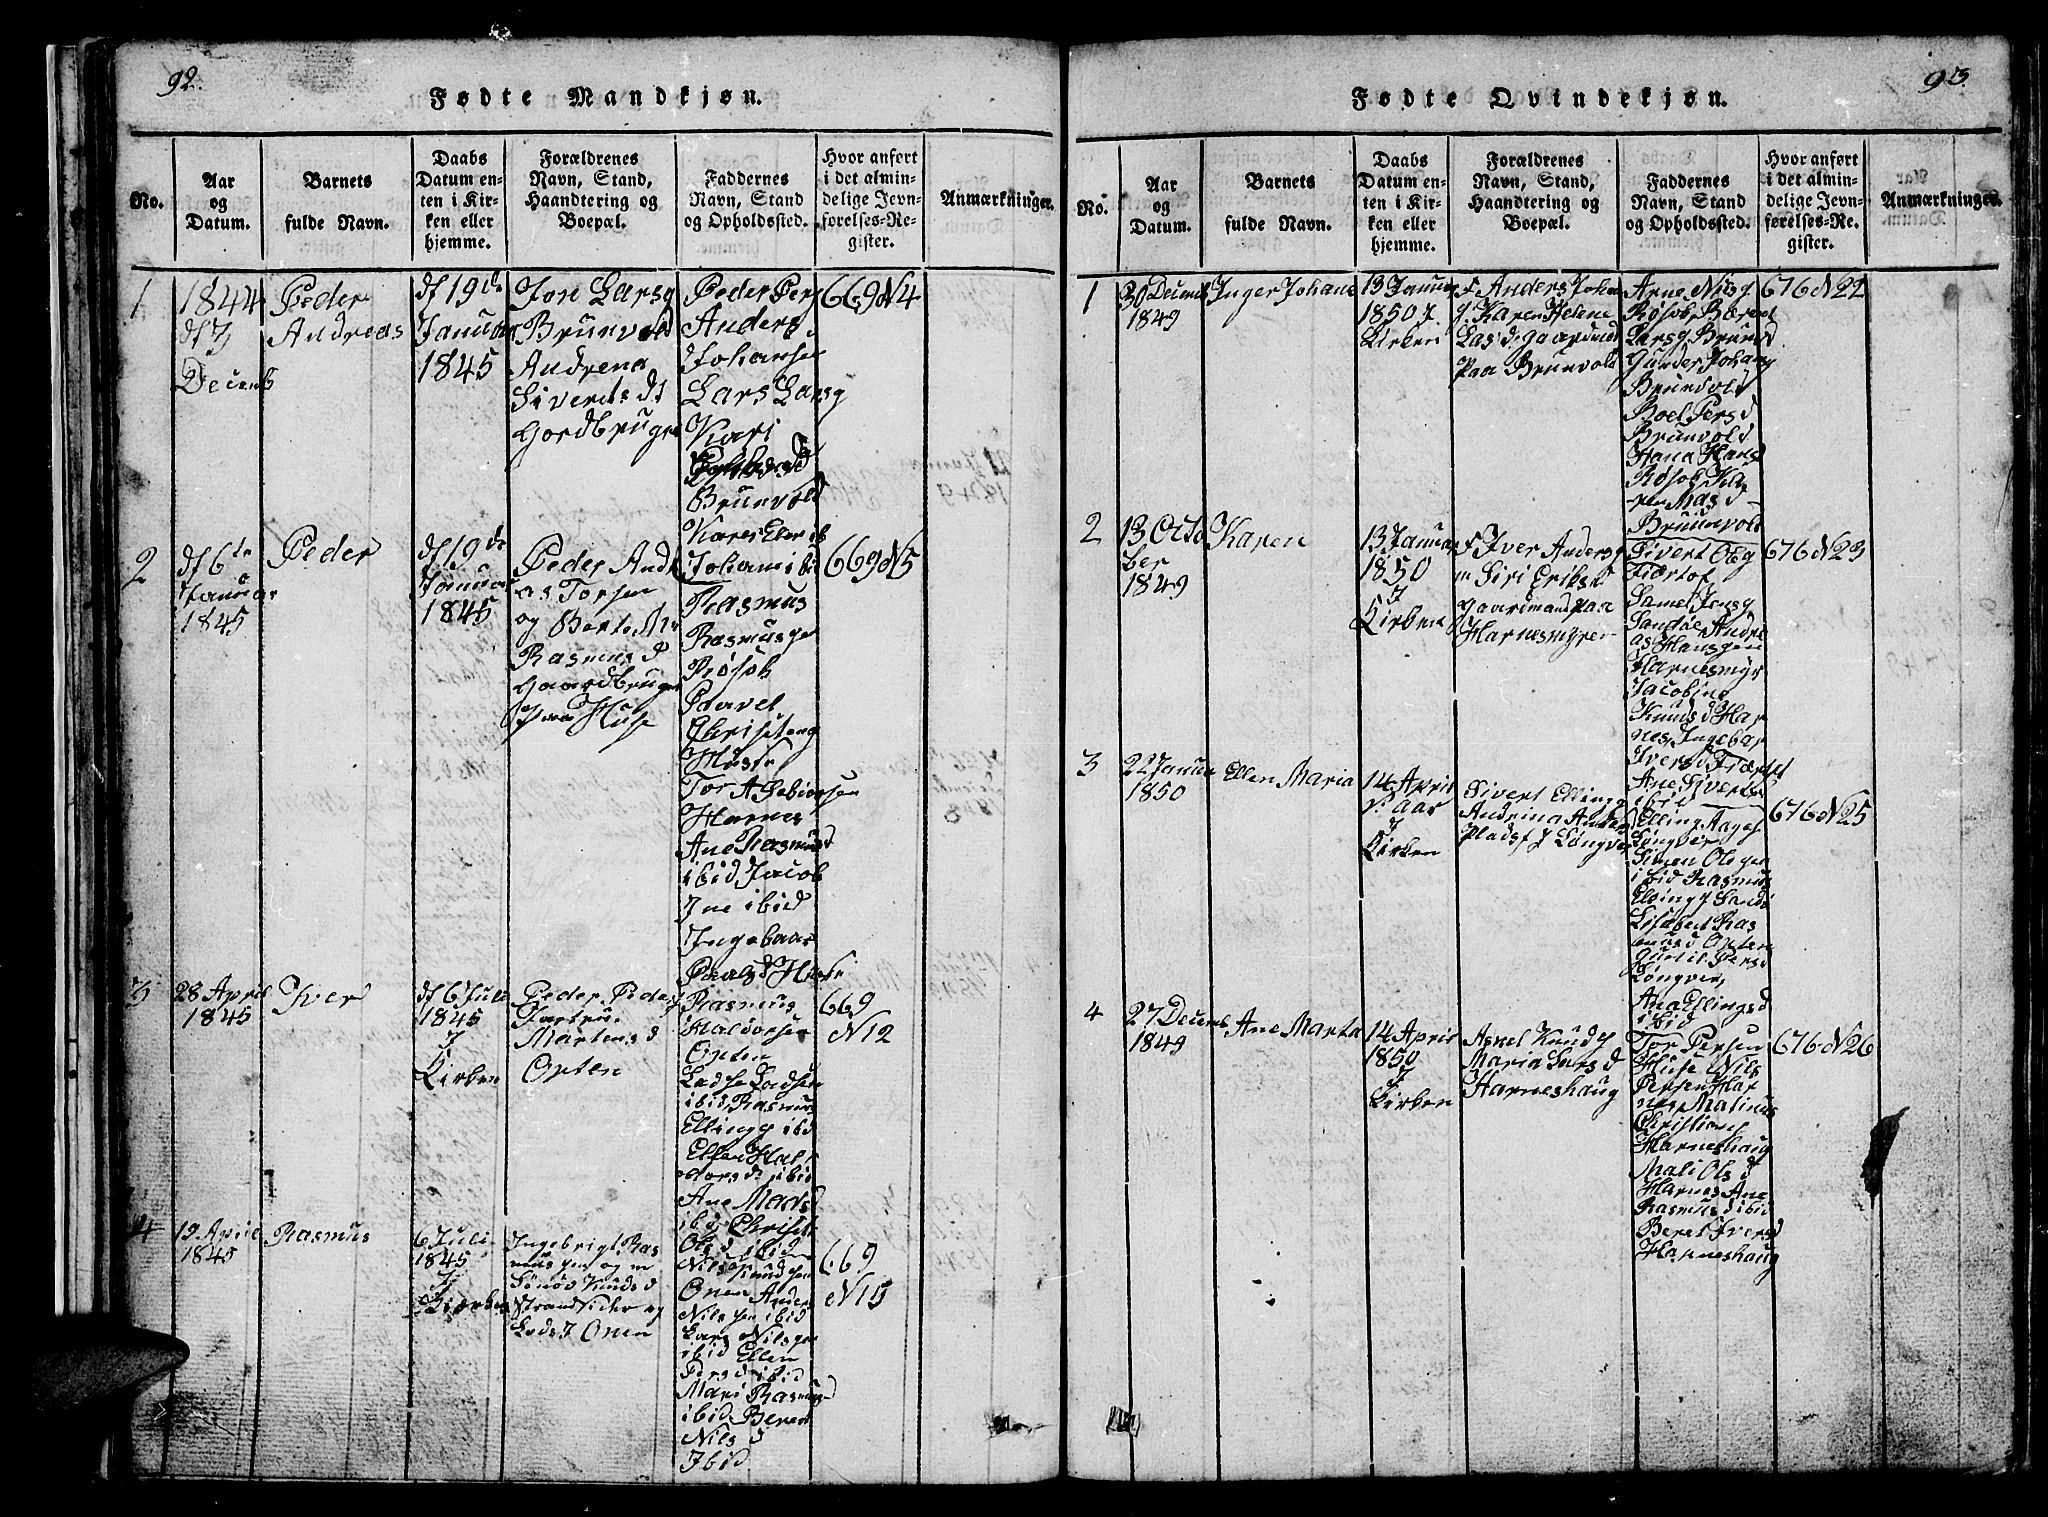 92.
Fødte Mandkjøn.
No.
Aar
og
Datum.
Barnets
fulde Navn.
Daabs
Datum en-
ten i Kir-
ken eller
hjemme.
Forældrenes
Navn, Stand,
Haandtering og
Boepæl.
Faddernes
Navn, Stand
og Opholdssted.
Hvor anført
i det almin-
delige Jevn-
førelses-Re-
gister.
Anmærkninger.
1
1844
Decemb
Peder
Andreas
df 19de
Januar
1845
Jon Larsg
Brunvold
Andrena
Siverts dt
Peder Pers
Anders
Johansen
Lars Larsg
Kari
Brunvold
Karen Elen ib
Johane ibid
669 N4
2
df 6te
Januar
1845
Peder
df 19de
Januar
1845
Peder Andr
as Torsen
og Berte
Rasmus d
Gaardbruger
paa Huse
Rasmus
Rasmusgen
Røsok
Paavel
Huse
Harnes
Ane Rasmusd
ibid Jacob
Ine ibid
Ingebaar
Paals d Huse
669 N5
3
28 April
1845
Iver
df 6 Juli
1845
I
Kirken
Peder Peders
Martens d
Opten
Rasmus
Haldorsen
Opten
Ladse Ladsen
ibid, Rasmus
Elling ibid
Ellen Hal
dors d, ibid
Ane Mads d
ibid,
Ols d ibid
669
N12
4
19 April
1845
Rasmus
6 Juli
1845
I
Kirken
Ingebrigt Ras
musgen og m
Knuds d
Strandsider og
Lods I Onen
Nils Knudsgen
Onen Anders
Nilsgen ibid
Lars Nilsgen
ibid Ellen
Pers d ibid
Mari Rasmusd
ibid, Beret
Nils d
Ibid
669
N15
93.
Fødte Qvindekjøn.
No.
Aar
og
Datum.
Barnets
fulde Navn.
Daabs
Datum en-
ten i Kir-
ken eller
hjemme.
Forældrenes
Navn, Stand,
Haandtering og
Boepæl.
Faddernes
Navn, Stand
og Opholdssted.
Hvor anført
i det almin-
delige Jevn-
førelses-Re-
gister.
Anmærkninger.
1
30 Decemb
1849
Inger Johane
13 Januar
1850 I
Kirken
F Anders Johan
g. Karen Helene
Gaardmd
paa Brunvold
Arne Nilsg
Røsok
Larsg Brunvold
Gunder Johang
Brunvold
Boel Pers d
Brunvold
Hana Hans
Røsok Ka
ren Mads d
Brunvold
676 N22
2
13 Octo
ber
1849
Karen
13 Januar
1850
I
Kirken
F Iver Andersg
m Siri Eriks d
Gaardmand paa
Harnesmyren
Sivert Oleg
Fiærtoft
Samel Jensg
Sandøe Andre
as Hansgen
Harnesmyr
Jacobine
Knuds d Har
nes, Ingebor
Ivers d Fiærtoft
Ane Siverts d
ibid
676 N23
3
22 Januar
1850
Ellen Maria
14 April
s. Aar
I
Kirken
Sivert Ellingg
Andrina Anders
Pladsf I Longver
Elling Aages
Longver
Simen Olsgen
ibid Rasmus
Elling I Sandø
Lisabet Ras
mus d Opten
Pers d
Longver,
Ana Ellings d
ibid
676 N25
4
27 Decemb
1849
Ane Marta
14 April
1850
I
Kirken
Axel Knudg
Maria Lars d
Harneshaug
Tor Persen
Huse Nils
Persen Har
nes, Malinus
Christians
Harneshaug
Mali Ols d
Harnes Ane
Rasmus d ibid
Beret Ivers d
Harneshaug
676 N26